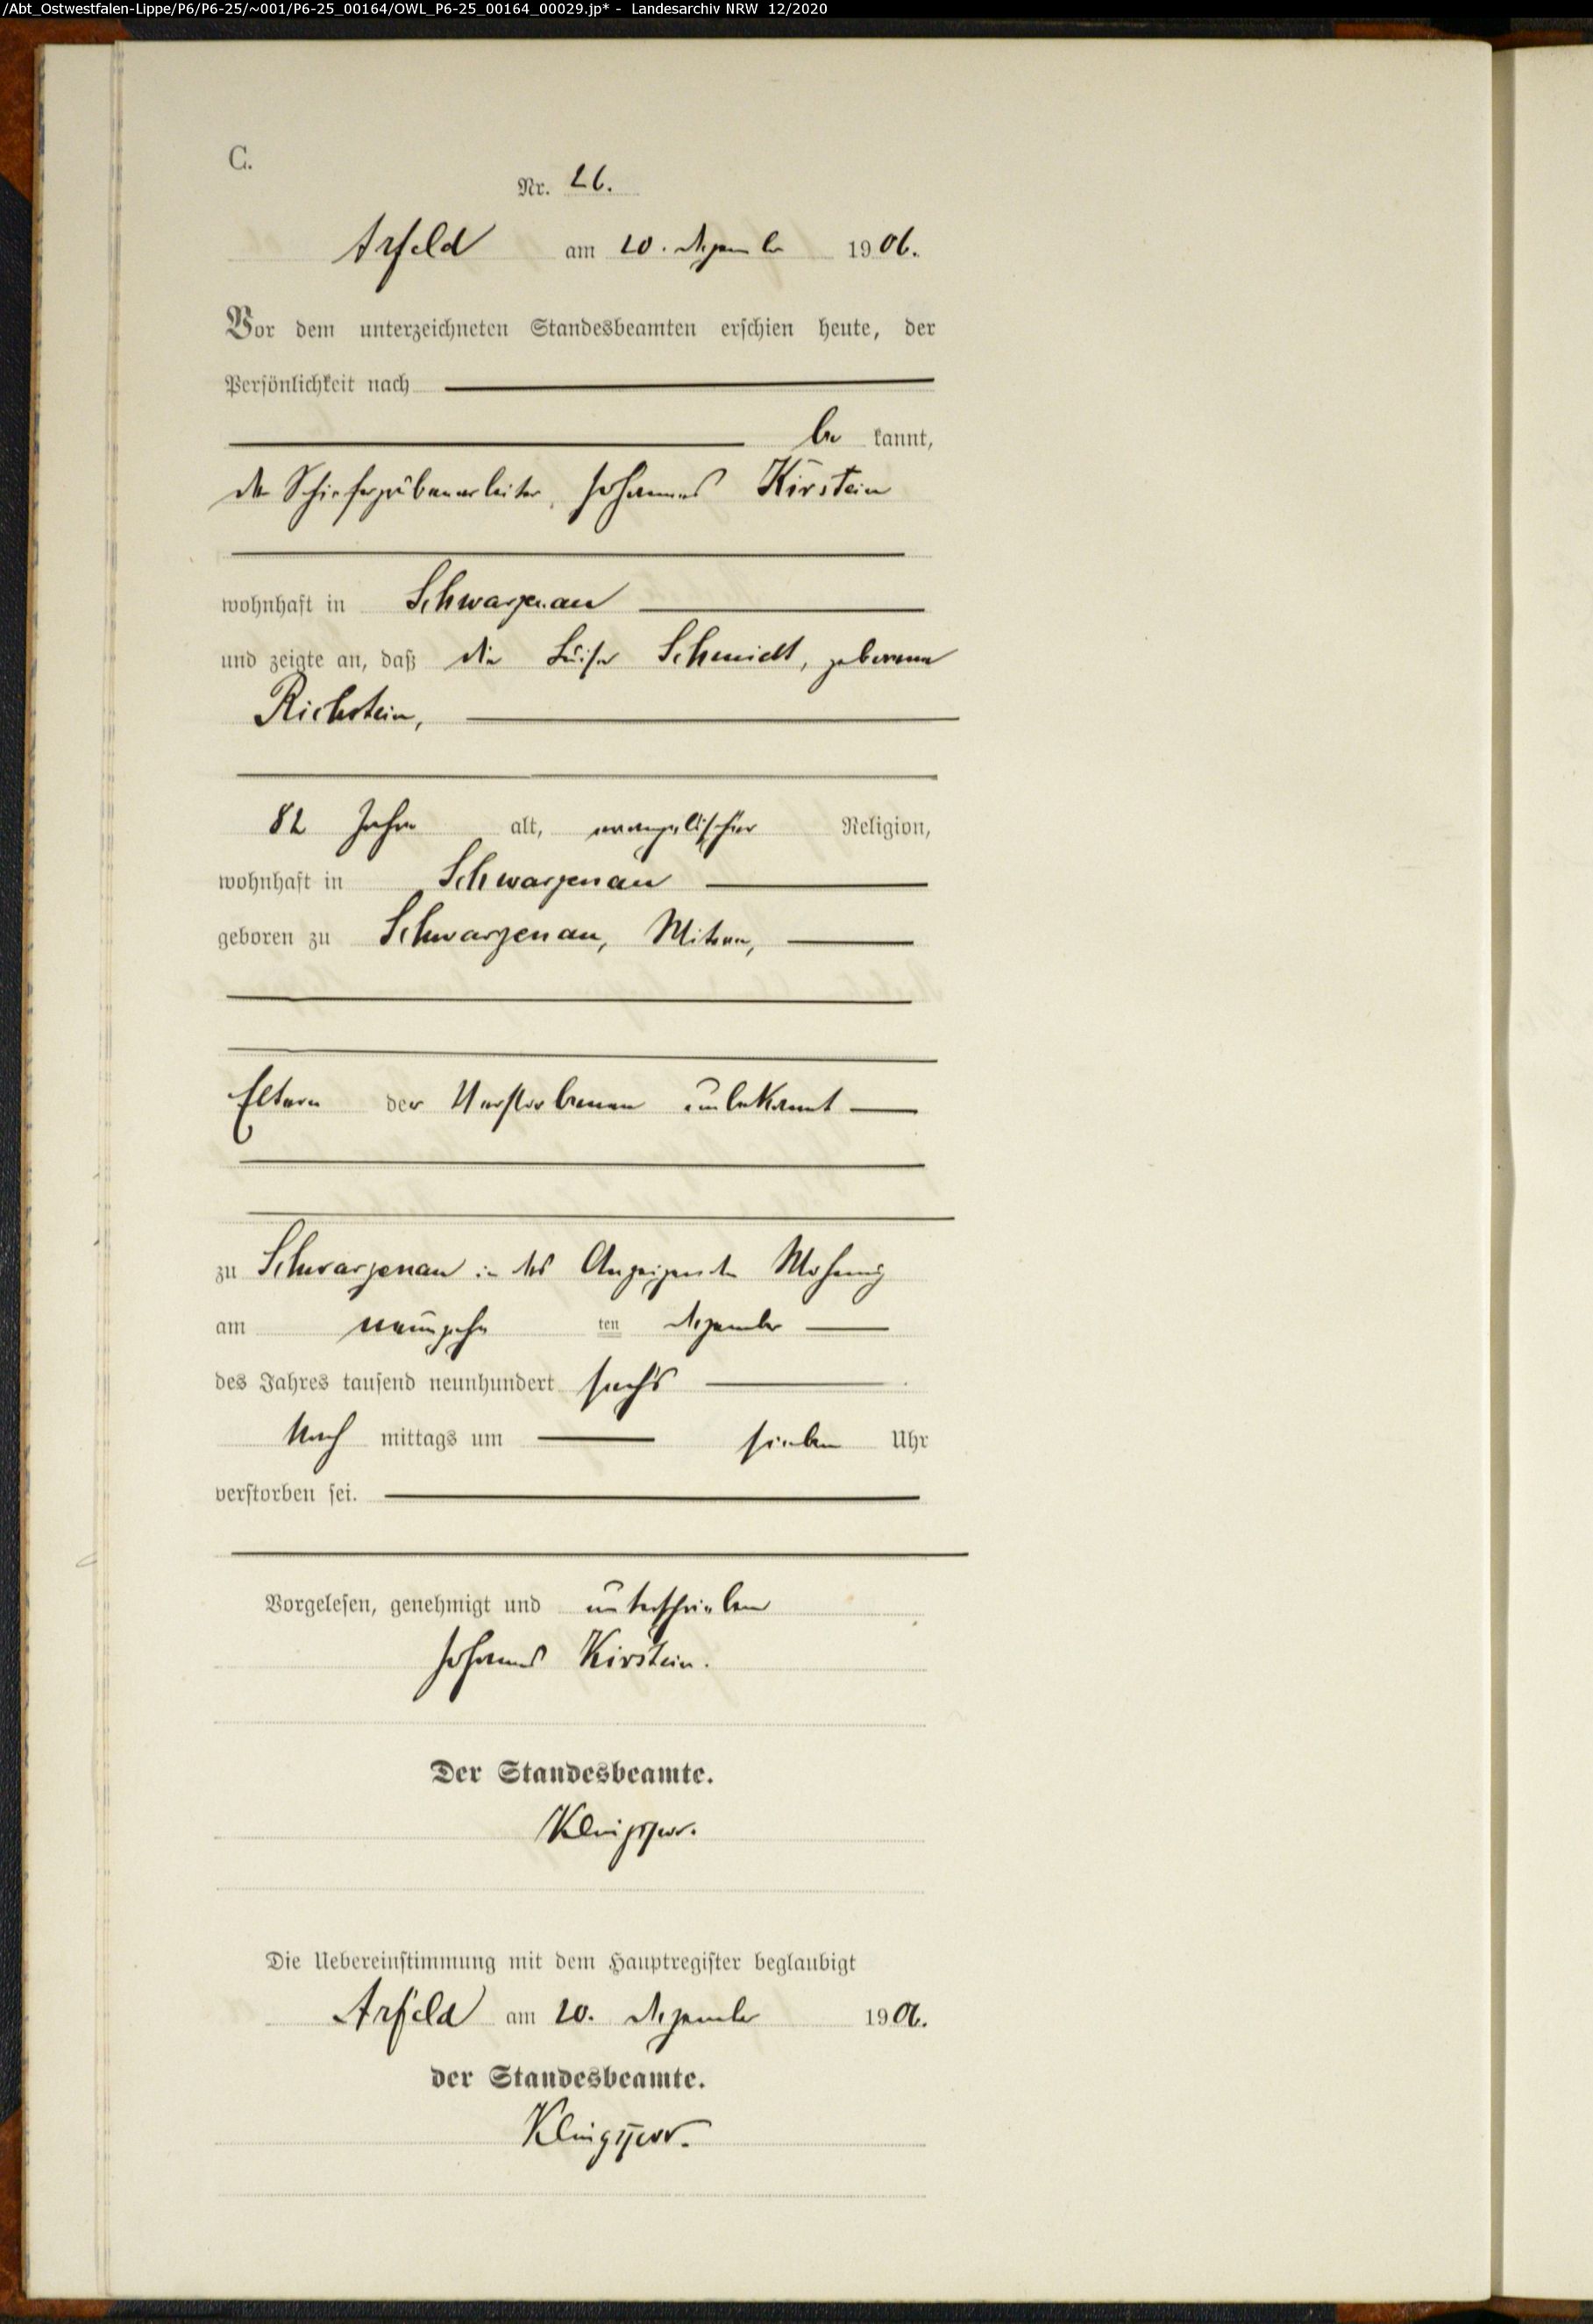 /Abt_Ostwestfalen-Lippe/P6/P6-25/~001/P6-25_00164/OWL_P6-25_00164_00029.jp* - Landesarchiv NRW 12/2020
C.
Nr. 26.
Arfeld am 20. Dezember 1906.
Vor dem unterzeichneten Standesbeamten erschien heute, der
Persönlichkeit nach
be kannt,
der Schiefergrubenarbeiter, Johannes Kirstein
wohnhaft in Schwarzenau
und zeigte an, daß die Luise Schmidt, geborene
Richstein,
82 Jahre alt, evangelischer Religion,
wohnhaft in Schwarzenau
geboren zu Schwarzenau, Witwe,
Eltern der Verstorbenen unbekannt
zu Schwarzenau in des Anzeigenden Wohnung
am neunzehn ten Dezember
des Jahres tausend neunhundert sechs
Nach mittags um sieben Uhr
verstorben sei.
Vorgelesen, genehmigt und unterschrieben
Johannes Kirstein.
Der Standesbeamte.
Klingspor.
Die Uebereinstimmung mit dem Hauptregister beglaubigt
Arfeld am 20. Dezember 1906.
der Standesbeamte.
Klingspor.